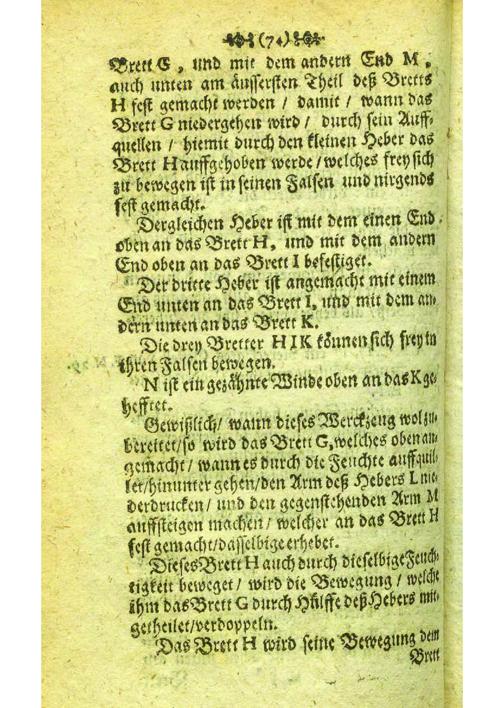 (74)
Brett G, und mit dem andern End M,
auch unten am äussersten Theil deß Bretts
H fest gemacht werden / damit / wann das
Brett G niedergehen wird / durch sein Auff-
quellen / hiemit durch den kleinen Heber das
Brett H auffgehoben werde / welches frey sich
zu bewegen ist in seinen Falsen und nirgends
fest gemacht.
Dergleichen Heber ist mit dem einen End
oben an das Brett H, und mit dem andern
End oben an das Brett I befestiget.
Der dritte Heber ist angemacht mit einem
End unten an das Brett I, und mit dem an-
dern unten an das Brett K.
Die drey Bretter H I K können sich frey in
ihren Falsen bewegen.
N ist ein gezähnte Winde oben an das K ge-
hefftet.
Gewißlich / wann dieses Werckzeug wol zu-
bereitet / so wird das Brett G, welches oben an-
gemacht / wann es durch die Feuchte auffquil-
let / hinunter gehen / den Arm deß Hebers L nie-
derdrucken / und den gegenstehenden Arm M
auffsteigen machen / welcher an das Brett H
fest gemacht / dasselbige erhebet.
Dieses Brett H auch durch dieselbige Feuch-
tigkeit beweget / wird die Bewegung / welche
ihm das Brett G durch Hülffe deß Hebers mit-
getheilet / verdoppeln.
Das Brett H wird seine Bewegung dem
Brett